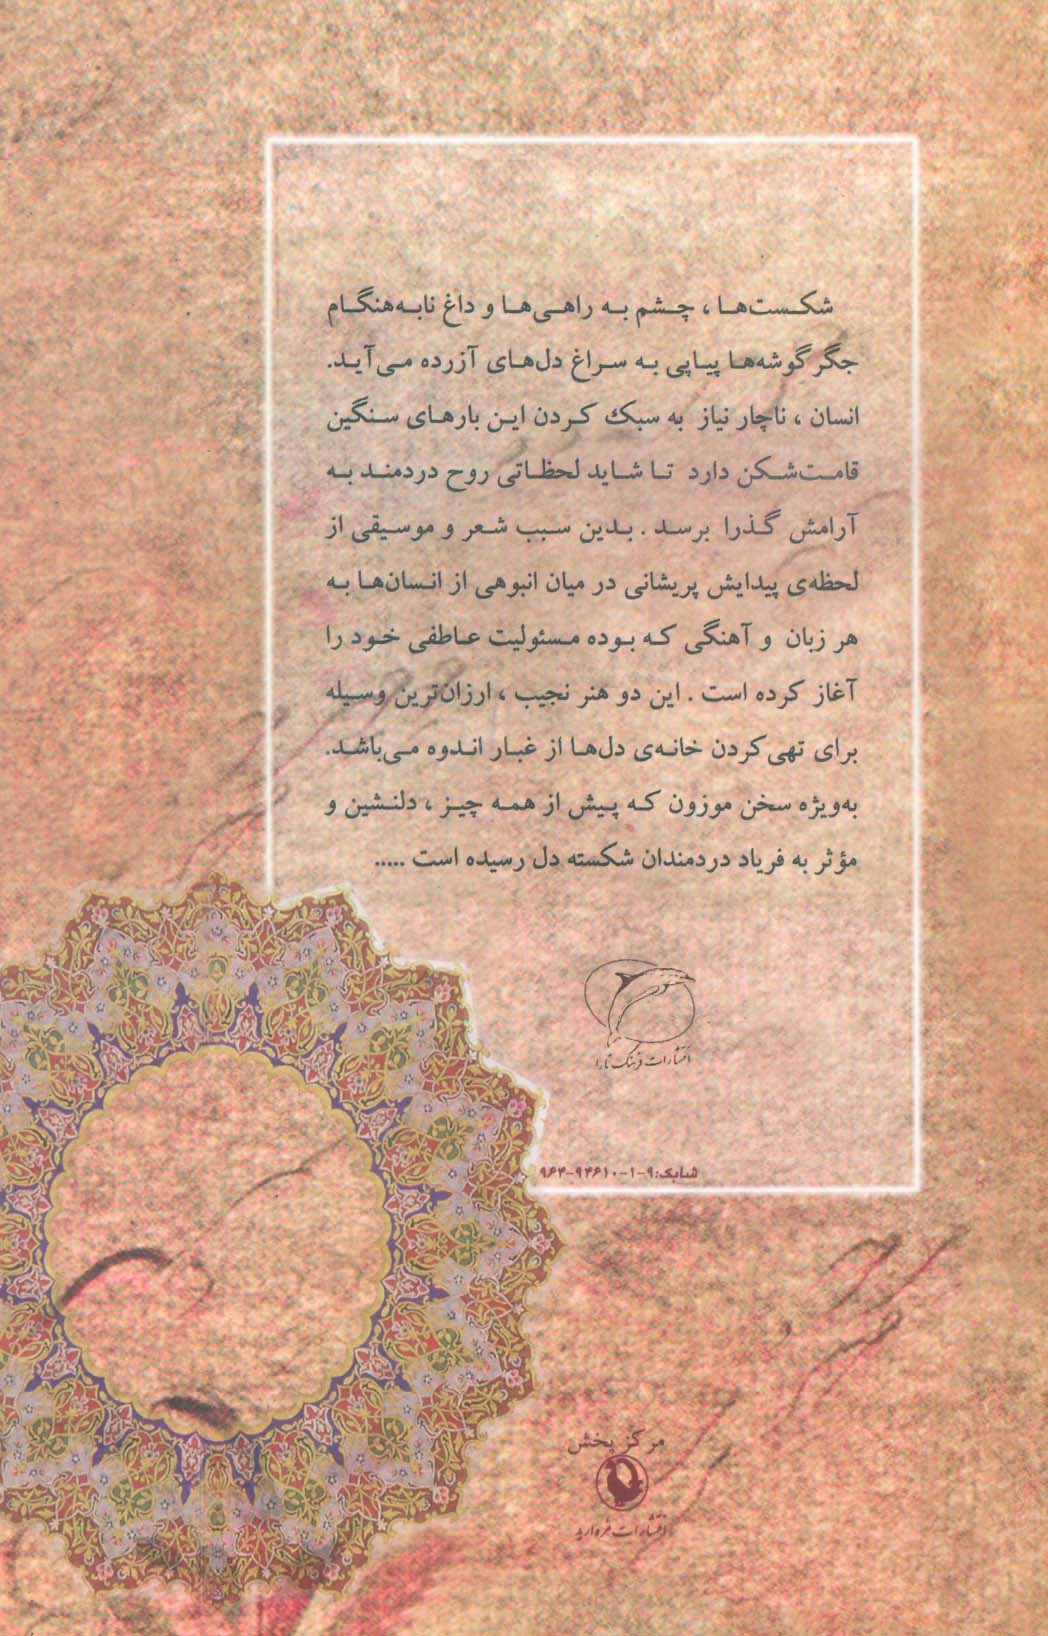 شکست‌ها ، چشم به راهی‌ها و داغ نابه‌هنگام
جگر گوشه‌ها پیاپی به سراغ دل‌های آزرده می‌آید.
انسان ، ناچار نیاز به سبک کردن این بارهای سنگین
قامت‌شکن دارد تا شاید لحظاتی روح دردمند به
آرامش گذرا برسد . بدین سبب شعر و موسیقی از
لحظه‌ی پیدایش پریشانی در میان انبوهی از انسان‌ها به
هر زبان و آهنگی که بوده مسئولیت عاطفی خود را
آغاز کرده است . این دو هنر نجیب ، ارزان‌ترین وسیله
برای تهی کردن خانه‌ی دل‌ها از غبار اندوه می‌باشد.
به‌ویژه سخن موزون که پیش از همه چیز ، دلنشین و
مؤثر به فریاد دردمندان شکسته دل رسیده است .....
انتشارات فرهنگ تارا
شابک:۹-۱-۹۴۶۱۰-۹۶۴
مرکز پخش
انتشارات مروارید